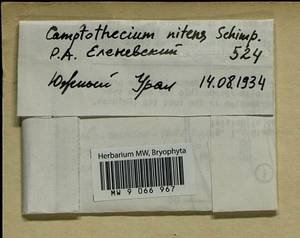 Camptothecium nitens Schimp.
Р.А. Еленевский 524
Южный Урал 14.08.1934
Herbarium MW, Bryophyta
MW 9 066 967